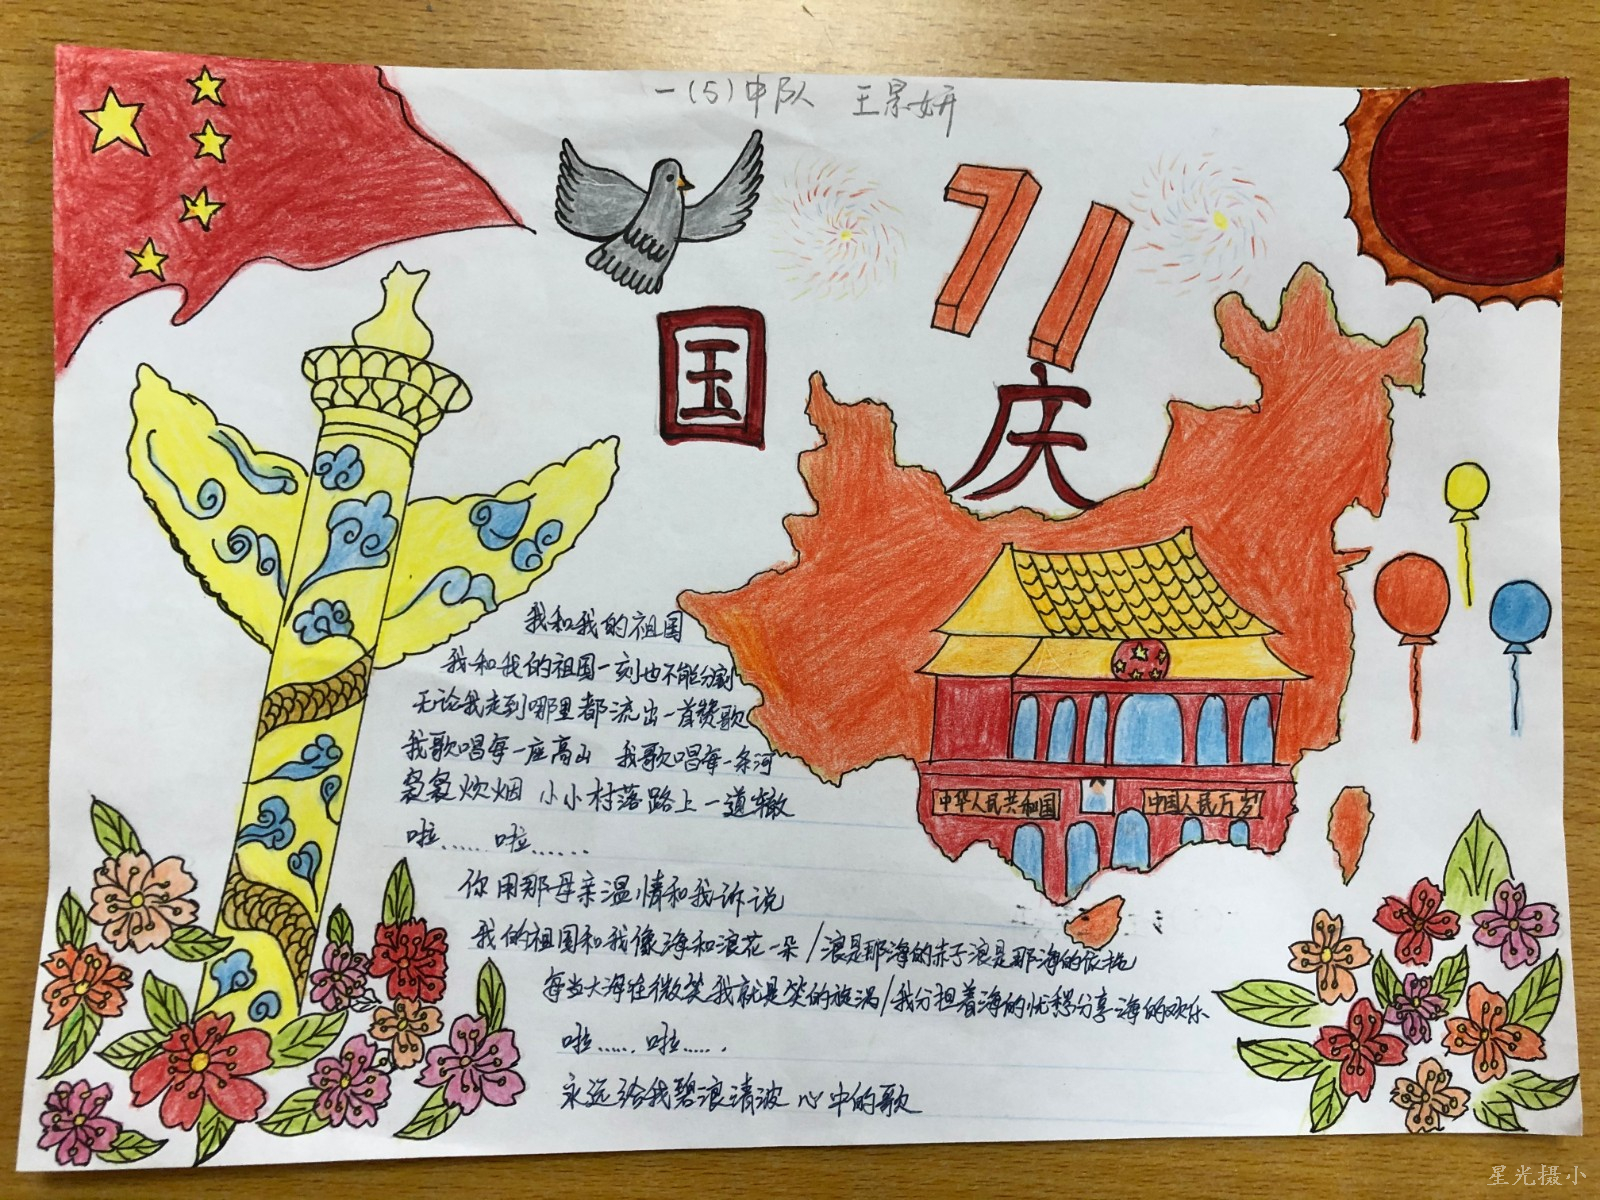 一(5)中队 王景妍
71
国庆
中华人民共和国 中国人民万岁
我和我的祖国
我和我的祖国一刻也不能分割
无论我走到哪里都流出一首赞歌
我歌唱每一座高山 我歌唱每一条河
袅袅炊烟 小小村落路上一道辙
啦…… 啦……
你用那母亲温情和我诉说
我的祖国和我像海和浪花一朵/浪是那海的赤子浪是那海的依托
每当大海在微笑我就是笑的旋涡/我分担着海的忧愁分享海的欢乐
啦…… 啦……
永远给我碧浪清波 心中的歌
星光摄小